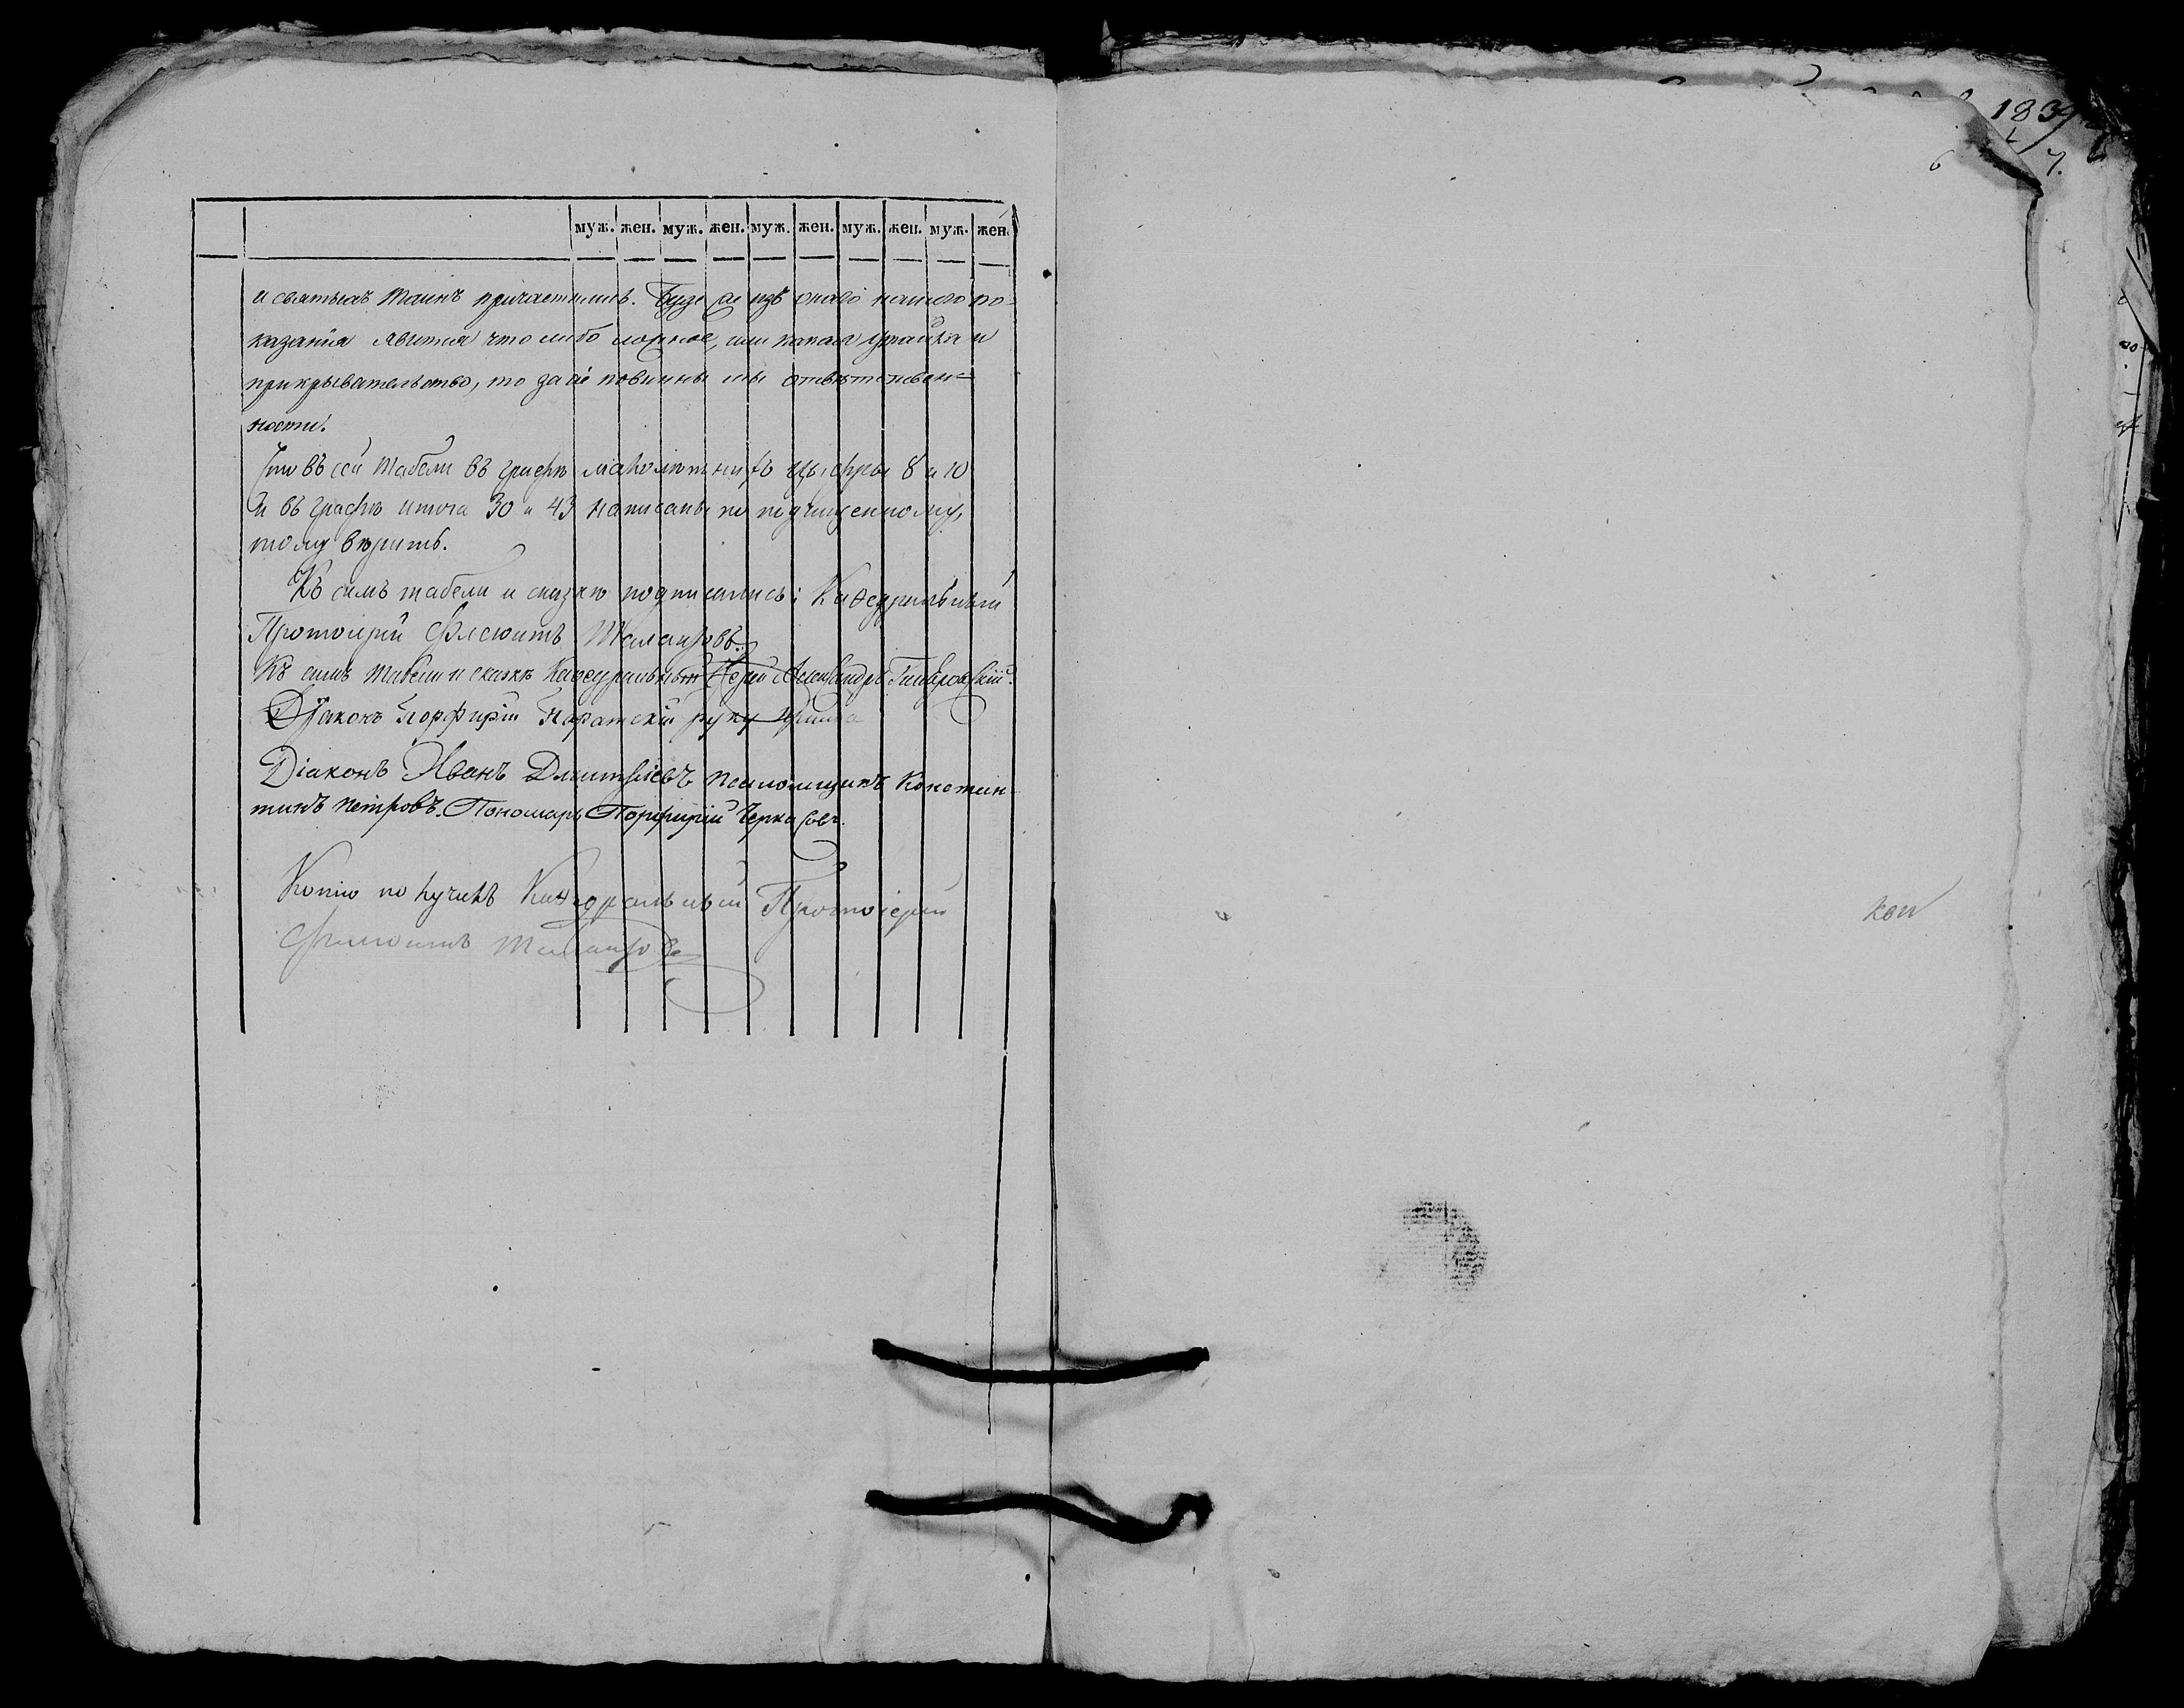 муж. жен. муж. жен. муж. жен. муж. жен. муж. жен.
и святыхъ Таинъ причастились. Буде же изъ онаго нашего по-
казанія явится что либо ложное, или какая утайка и
прикрывательство, то за сіе повинны мы отвѣтствен-
ности.
Что въ сей Табели въ графѣ малолѣтнихъ цыфры 8 и 10
и въ графѣ итога 30 и 43 написаны по подчищенному,
тому вѣрить.
Къ симъ табели и сказкѣ подписались: Каѳедральный
Протоіерей
Къ симъ табели и сказкѣ Каѳедральный Іерей Александръ
Діаконъ Порфирій руку
Діаконъ Иванъ Дмитріевъ псаломщикъ Констан
тинъ Петровъ. Пономарь Порфирій Черкасовъ.
Копію получилъ Каѳедральный Протоіерей
1839
6
7.
коп